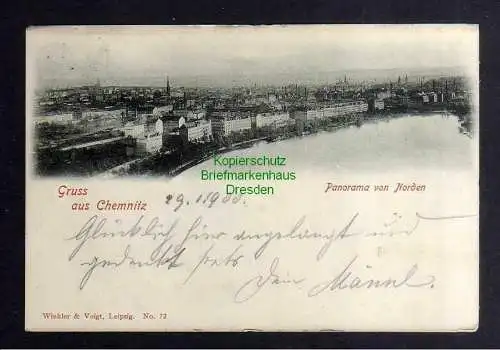 Kopierschutz
Briefmarkenhaus
Dresden
Gruss
aus Chemnitz
Panorama von Norden
29. 1900.
Glücklich hier angelangt und
gedenkt stets
Dein Männl.
Winkler & Voigt, Leipzig. No. 72